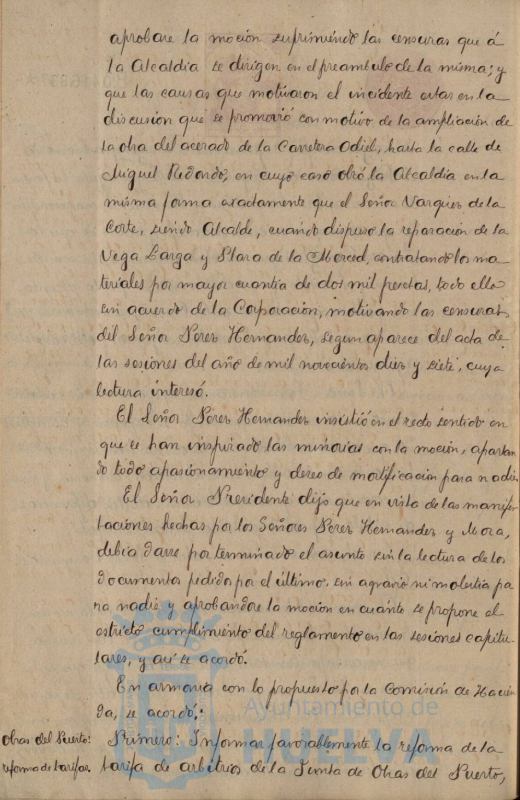 aprobare la moción suprimiendo las censuras que á
la Alcaldia se dirigen en el preambulo de la misma; y
que las causas que motivaron el incidente estar en la
discusión que se promovió con motivo de la ampliación de
la obra del acerado de la Carretera Odiel, hasta la calle de
Miguel Redondo, en cuyo caso obró la Alcaldia en la
misma forma exactamente que el Señor Vazquez de la
Corte, siendo Alcalde, cuando dispuso la reparación de la
Vega Larga y Plaza de la Merced, contratando los ma-
teriales por mayor cuantia de dos mil pesetas, todo ello
sin acuerdo de la Corporación, motivando las censuras
del Señor Perez Hernandez, segun aparece del acta de
las sesiones del año de mil novecientos diez y siete, cuya
lectura interesó.
El Señor Perez Hernandez insistió en el recto sentido en
que se han inspirado las minorias con la moción, apartan
do todo apasionamiento y deseo de mortificación para nadie.
El Señor Presidente dijo que en vista de las manifes-
taciones hechas por los Señores Perez Hernandez y Mora,
debia darse por terminado el asunto sin la lectura de los
documentos pedido por el último, sin agravio ni molestia pa
ra nadie y aprobandose la moción en cuanto se propone el
estricto cumplimiento del reglamento en las sesiones capitu-
lares, y asi se acordó.
En armonia con lo propuesto por la Comisión de Hacien
da, se acordó:
Obras del Puerto: Primero: Informar favorablemente la reforma de la
reforma de tarifas. tarifa de arbitrios de la Junta de Obras del Puerto,
Ayuntamiento de
HUELVA